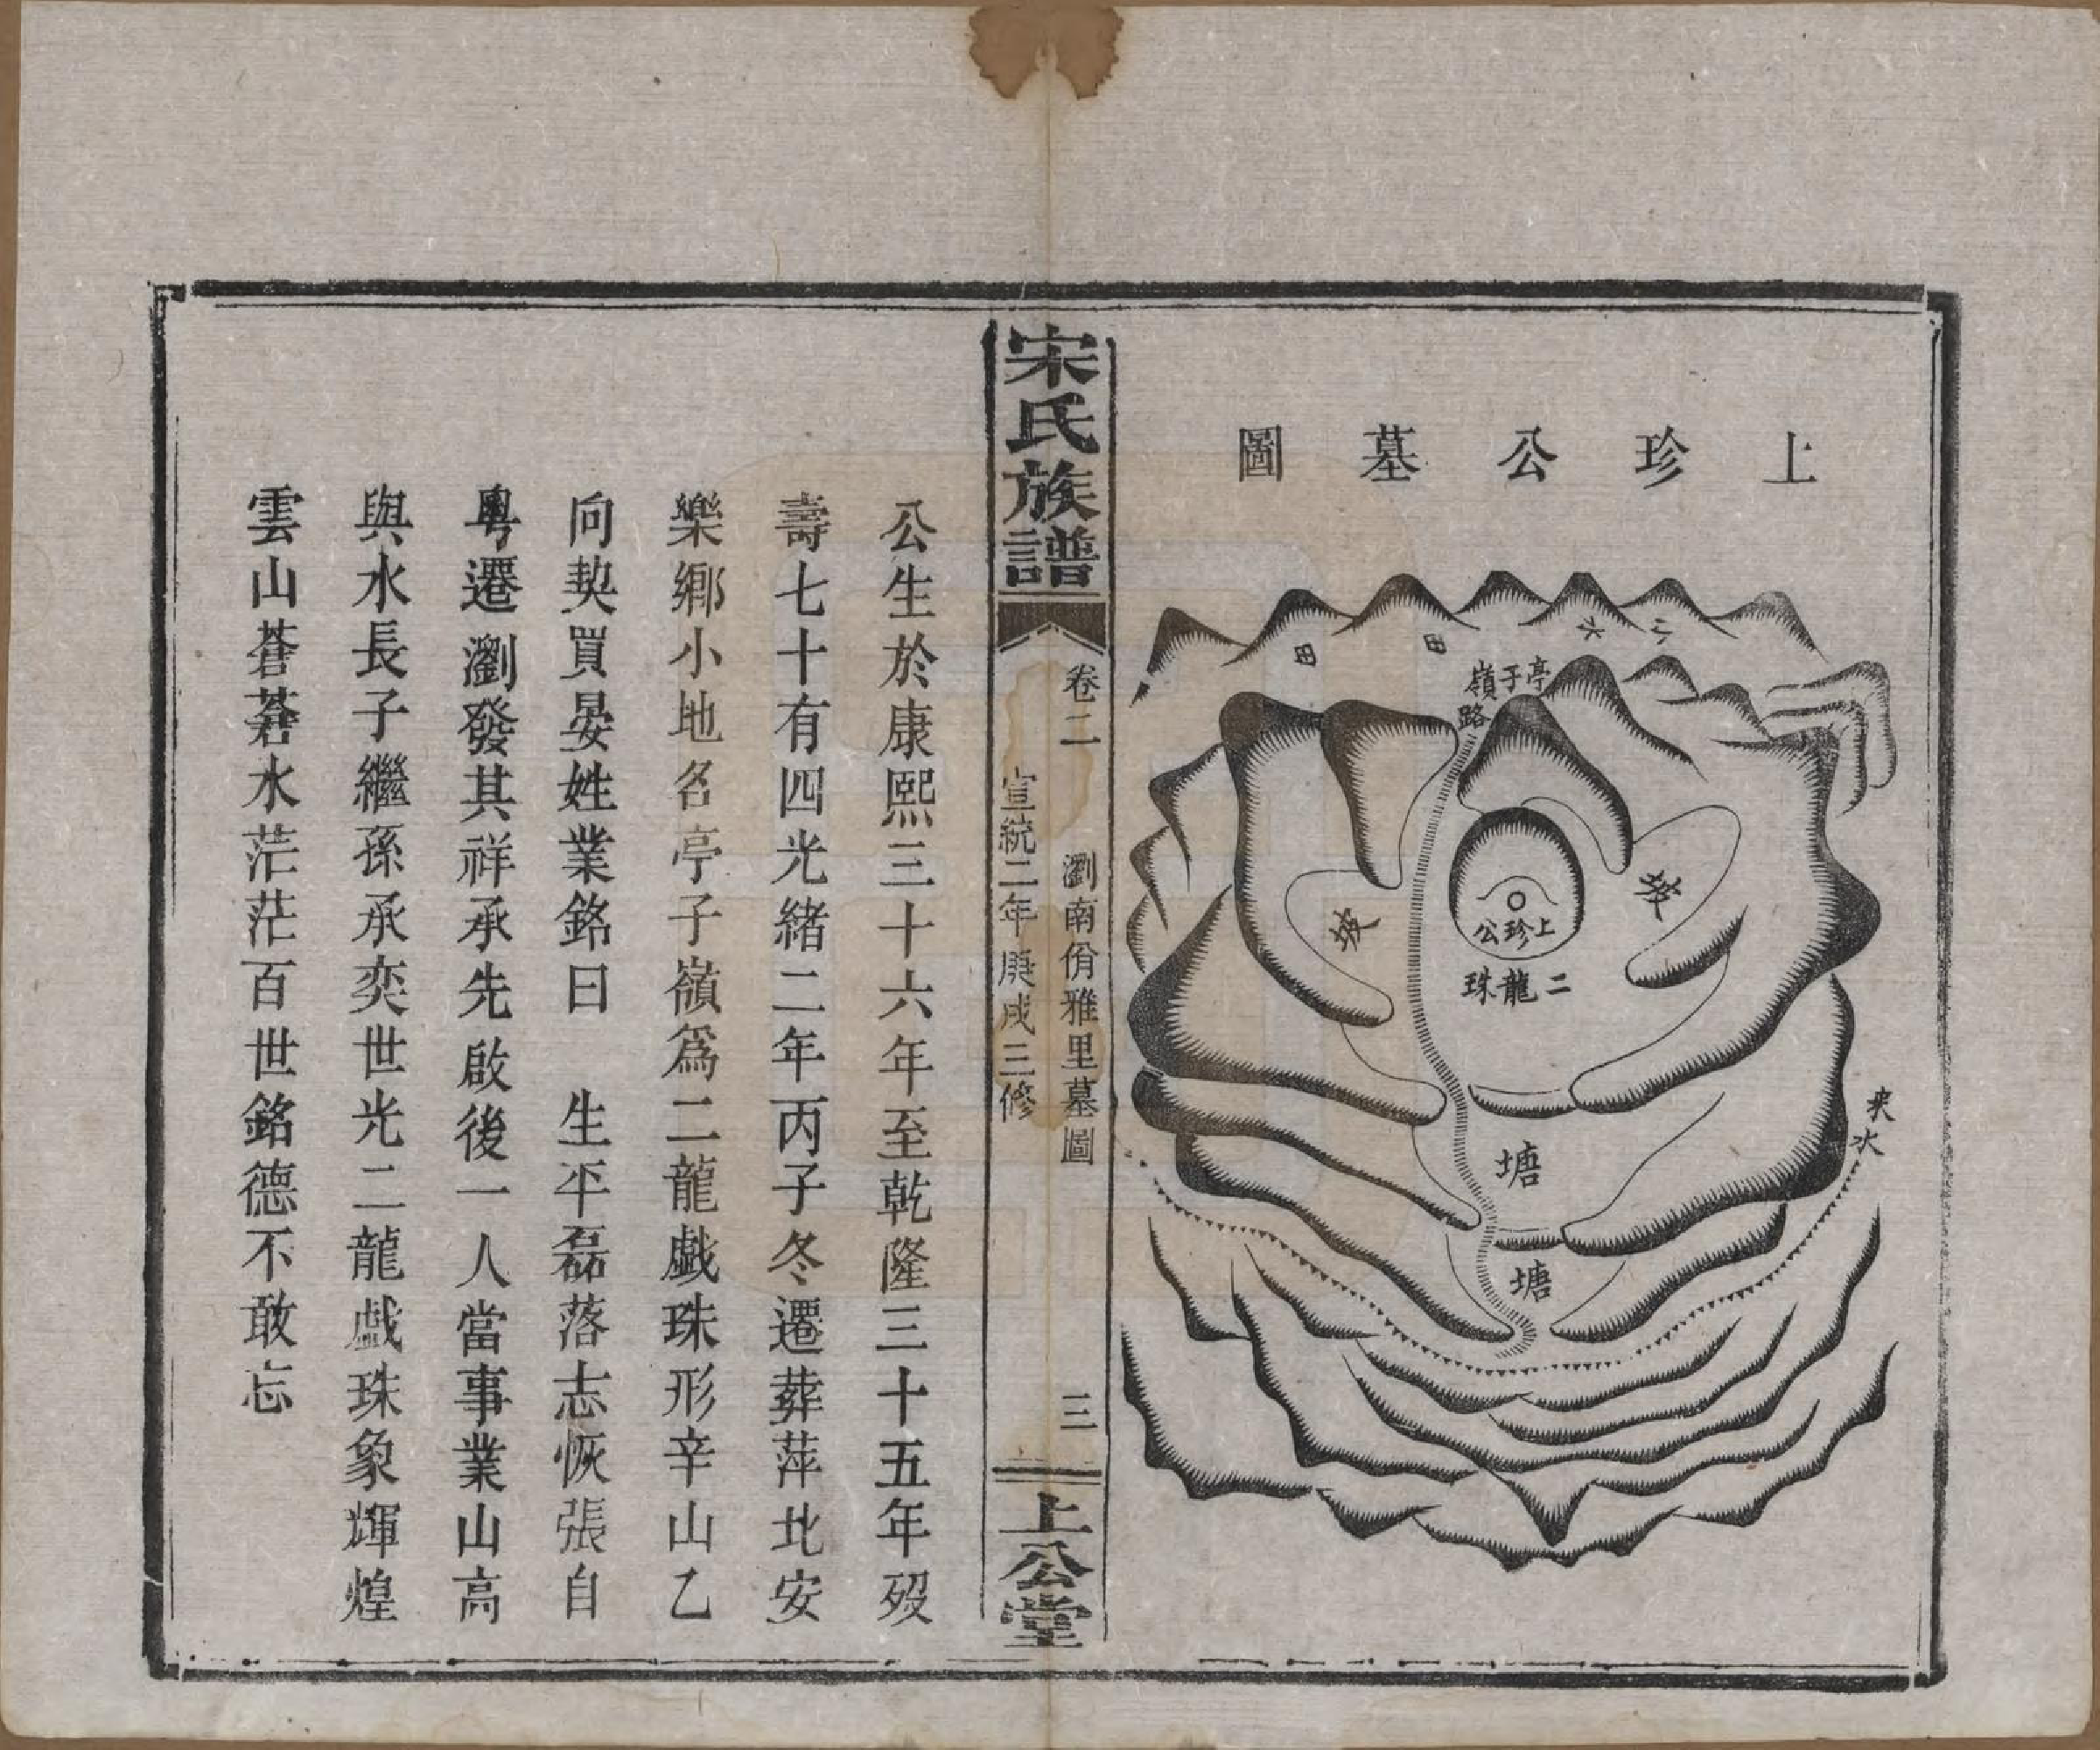 上珍公墓圖
田
田
水
亭子嶺
路
上珍公
二龍珠
塘
塘
夾水
宋氏族譜
卷二
瀏南佾雅里墓圖
三
宣統二年庚戌三修
上公堂
公生於康熙三十六年至乾隆三十五年歿
壽七十有四光緒二年丙子冬遷葬萍北安
樂鄉小地名亭子嶺爲二龍戯珠形辛山乙
向契買晏姓業銘曰　生平磊落志恢張自
粵遷瀏發其祥承先啟後一人當事業山高
與水長子繼孫承奕世光二龍戯珠象輝煌
雲山蒼蒼水茫茫百世銘德不敢忘